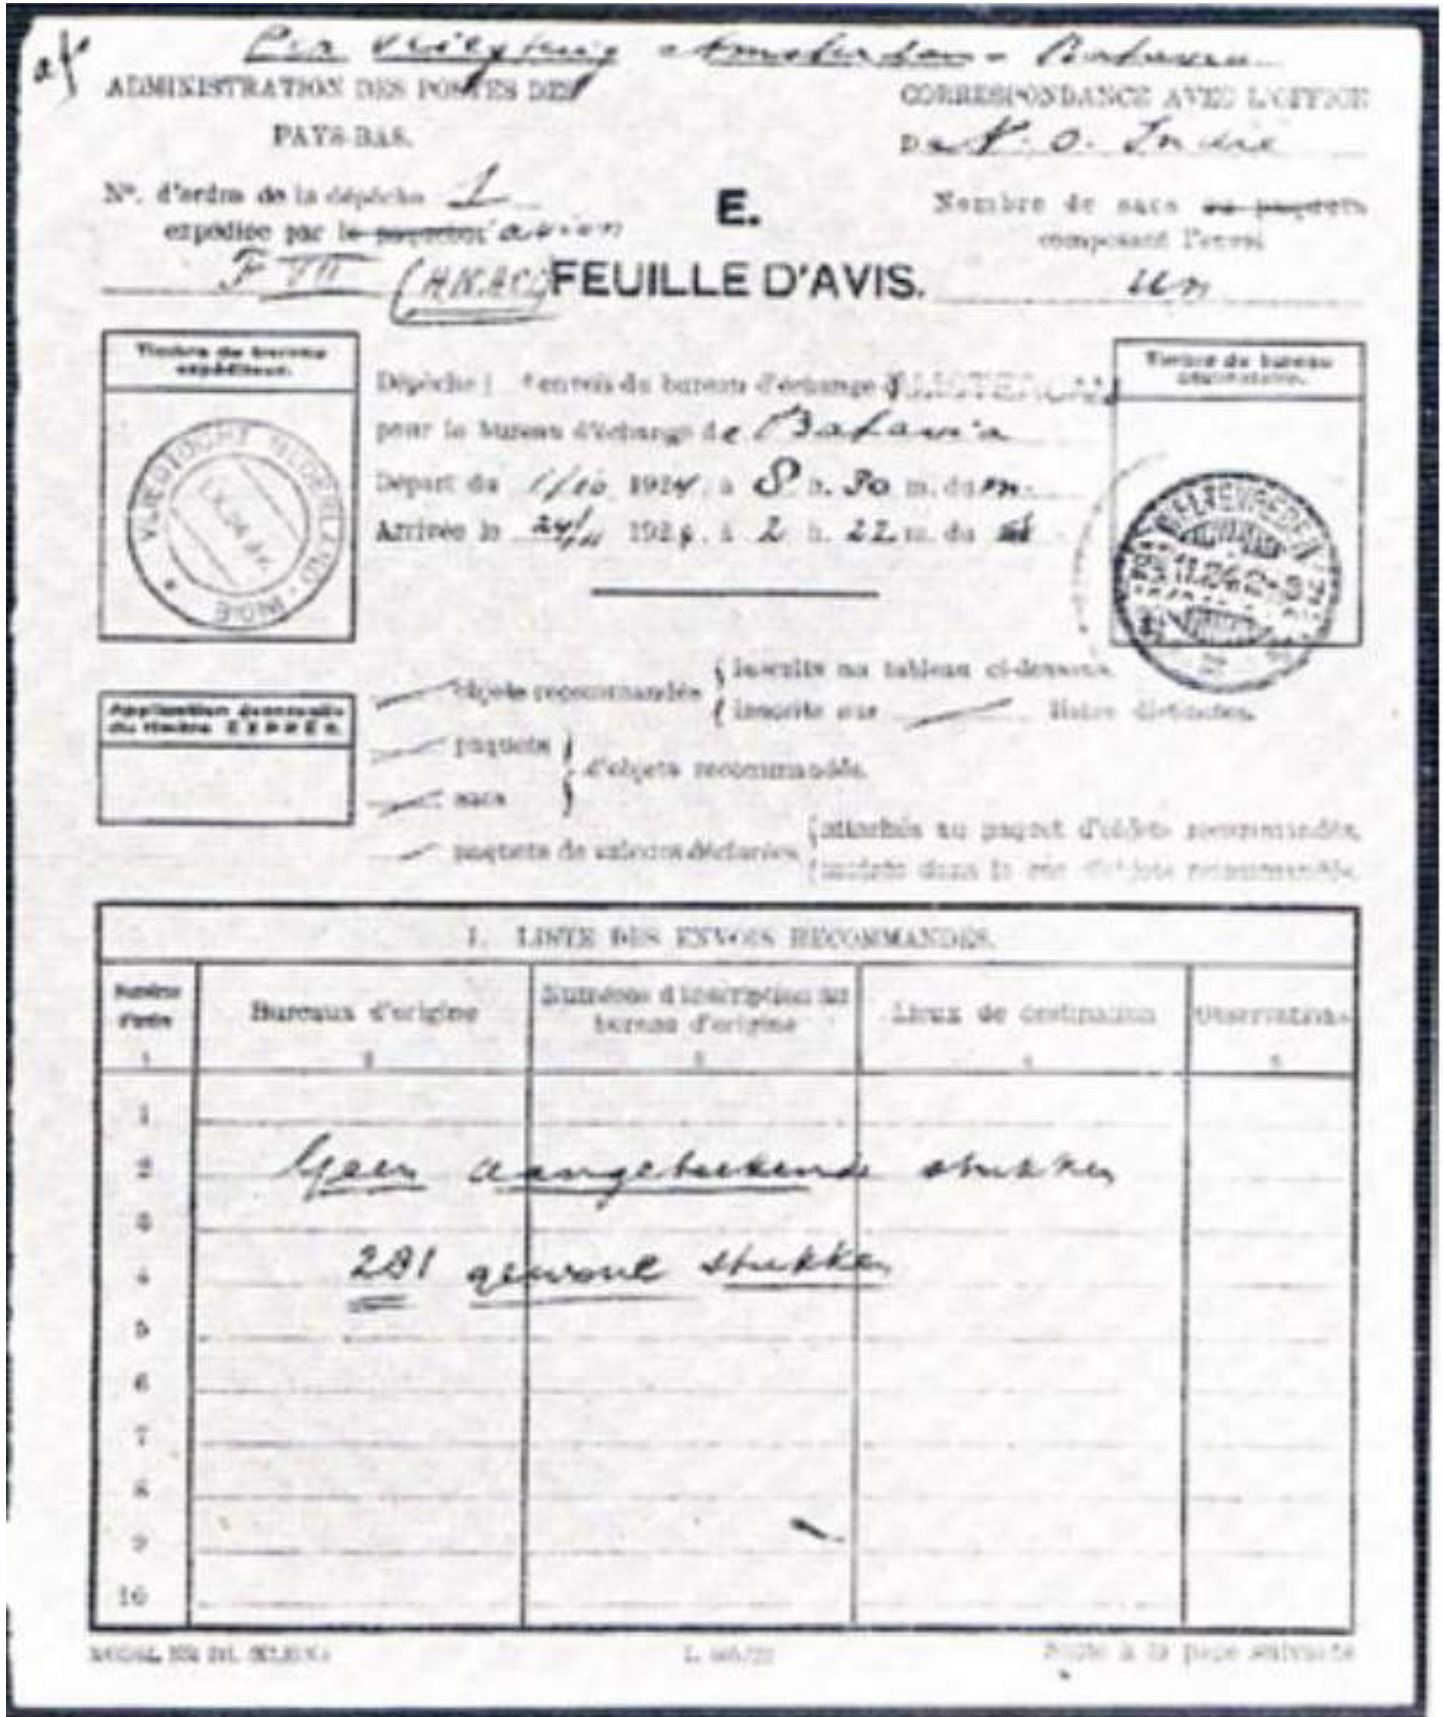 Per vliegtuig Amsterdam - Batavia
ADMINISTRATION DES POSTES DES
PAYS-BAS.
CORRESPONDANCE AVEC L'OFFICE
De N. O. Indië
N°. d'ordre de la dépêche 1
expédiée par le paquebot avion
F VII (HNACC)
E.
FEUILLE D'AVIS.
Nombre de sacs ou paquets
composant l'envoi
un
Timbre du bureau
expéditeur.
VLIEGTOCHT NEDERLAND - INDIË
Dépêche envois du bureau d'échange d'AMSTERDAM
pour le bureau d'échange de Batavia
Départ du 1/10 1924 à 8 h. 30 m. du m.
Arrivée le 24/11 1924. à 2 h. 22 m. du
Timbre du bureau
destinataire.
WELTEVREDEN
Application éventuelle
du timbre EXPRÈS.
objets recommandés
inscrits au tableau ci-dessous.
inscrits sur listes distinctes.
paquets
sacs
d'objets recommandés.
paquets de valeurs déclarées
attachés au paquet d'objets recommandés.
insérés dans le sac d'objets recommandés.
I. LISTE DES ENVOIS RECOMMANDÉS.
Numéros
d'ordre
Bureaux d'origine
Numéros d'inscription au
bureau d'origine
Lieux de destination
Observations
1 2 3 4 5
1
2 Geen aangetekende stukken
3
4 281 gewone stukken
5
6
7
8
9
10
Suite à la page suivante